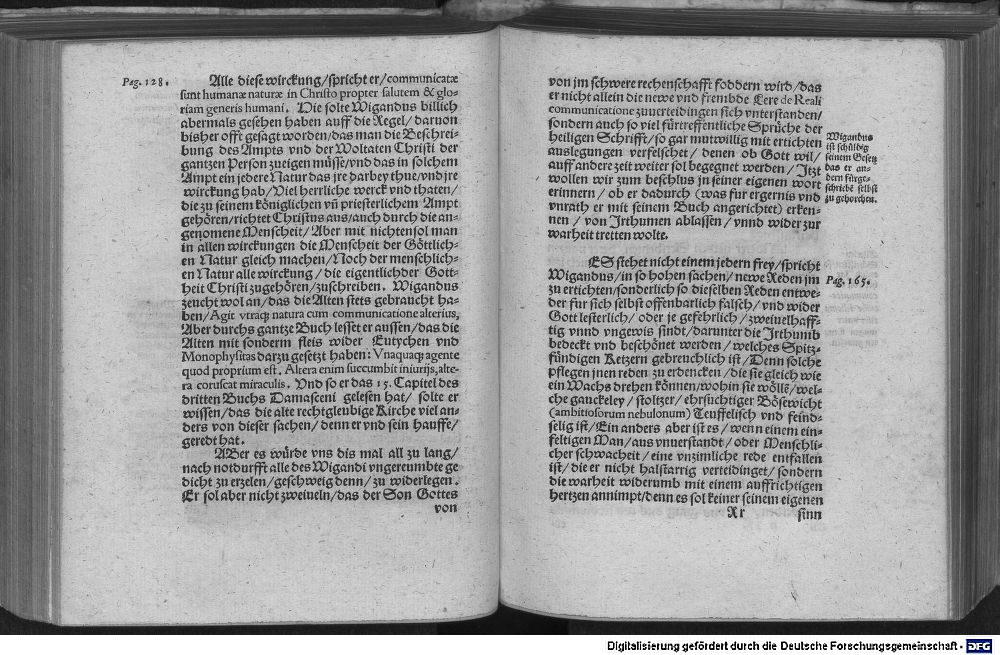 Pag. 128.
Alle diese wirckung/spricht er/communicatæ
sunt humanæ naturæ in Christo propter salutem & glo-
riam generis humani. Die solte Wigandus billich
abermals gesehen haben auff die Regel/daruon
bisher offt gesagt worden/das man die Beschrei-
bung des Ampts vnd der Woltaten Christi der
gantzen Person zueigen müsse/vnd das in solchem
Ampt ein jedere Natur das jre parbey thue/vnd jre
wirckung hab/Viel herrliche werck vnd thaten/
die zu seinem königlichen vñ priesterlichem Ampt
gehören/richtet Christus aus/auch durch die an-
genomene Menscheit/Aber mit nichten sol man
in allen wirckungen die Menscheit der Göttlich-
en Natur gleich machen/Noch der menschlich-
en Natur alle wirckung/die eigentlich der Gott-
heit Christi zugehören/zuschreiben. Wigandus
zeucht wol an/das die Alten stets gebraucht ha-
ben/Agit vtraq; natura cum communicatione alterius,
Aber durchs gantze Buch lesset er aussen/das die
Alten mit sonderm fleis wider Eutychen vnd
Monophysitas darzu gesetzt haben: Vnaquæq; agente
quod proprium est. Altera enim succumbit iniurijs, alte-
ra coruscat miraculis. Vnd so er das 15. Capitel des
dritten Buchs Damasceni gelesen hat/ solte er
wissen/das die alte rechtgleubige Kirche viel an-
ders von dieser sachen/denn er vnd sein hauffe/
geredt hat.
ABer es würde vns dis mal all zu lang/
nach notdurfft alle des Wigandi vngereumbte ge
dicht zu erzelen/geschweig denn/zu widerlegen.
Er sol aber nicht zweiueln/das der Son Gottes
von
von jm schwere rechenschafft foddern wird/das
er nicht allein die newe vnd frembde Lere de Reali
communicatione zuuerteidingen sich vnterstanden/
sondern auch so viel fürtreffentliche Sprüche der
heiligen Schrifft/so gar mutwillig mit ertichten
auslegungen verfelschet/ denen ob Gott wil/
auff andere zeit weiter sol begegnet werden/Jtzt
wollen wir zum beschlus jn seiner eigenen wort
erinnern/ob er dadurch (was fur ergernis vnd
vnrath er mit seinem Buch angerichtet) erken-
nen/von Jrthumen ablassen/vnnd wider zur
warheit tretten wolte.
Wigandus
ist schüldig
seinem Gesetz
das er an-
dern fürge-
schriebē selbst
zu gehorchen.
ES stehet nicht einem jedern frey/spricht
Wigandus/in so hohen sachen/newe Reden jm
zu ertichten/sonderlich so dieselben Reden entwe-
der fur sich selbst offenbarlich falsch/vnd wider
Gott lesterlich/oder je gefehrlich/zweiuelhaff-
tig vnnd vngewis sindt/darunter die Jrthumb
bedeckt vnd beschönet werden/welches Spitz-
fündigen Ketzern gebreuchlich ist/Denn solche
pflegen jnen reden zu erdencken/die sie gleich wie
ein Wachs drehen können/wohin sie wöllē/wel-
che gauckeley/stoltzer/ehrsuchtiger Bösewicht
(ambitiosorum nebulonum) Teuffelisch vnd feind-
selig ist/Ein anders aber ist es/wenn einem ein-
feltigen Man/aus vnuerstandt/oder Menschli-
cher schwacheit/eine vnzimliche rede entfallen
ist/die er nicht halstarrig verteidinget/sondern
die warheit widerumb mit einem auffrichtigen
hertzen annimpt/denn es sol keiner seinem eigenen
Pag. 165.
Rr
sinn
Digitalisierung gefördert durch die Deutsche Forschungsgemeinschaft - DFG